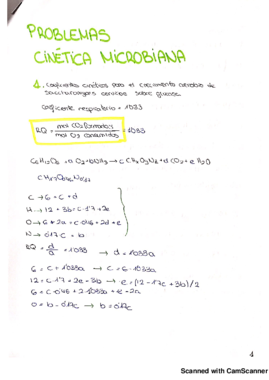 PROBLEMAS
CINÉTICA MICROBIANA
1. Coeficientes cinéticos para el crecimiento aerobio de
Saccharomyces cerevisiae sobre glucosa.
Coeficiente respiratorio = 1'033
RQ = mol CO2 formados / mol O2 consumidos = 1'033
C6H12O6 + a O2 + b NH3 → c CH1,7O0,46N0,17 + d CO2 + e H2O
C → 6 = c + d
H → 12 + 3b = c·1'7 + 2e
O → 6 + 2a = c·0'46 + 2d + e
N → 0'17c = b
RQ = d/a = 1'033 → d = 1'033a
6 = c + 1'033a → c = 6 - 1'033a
12 = c·1'7 + 2e - 3b → e = (12 - 1'7c + 3b)/2
6 = c·0'46 + 2·1'033a + e - 2a
0 = b - 0'17c → b = 0'17c
4
Scanned with CamScanner